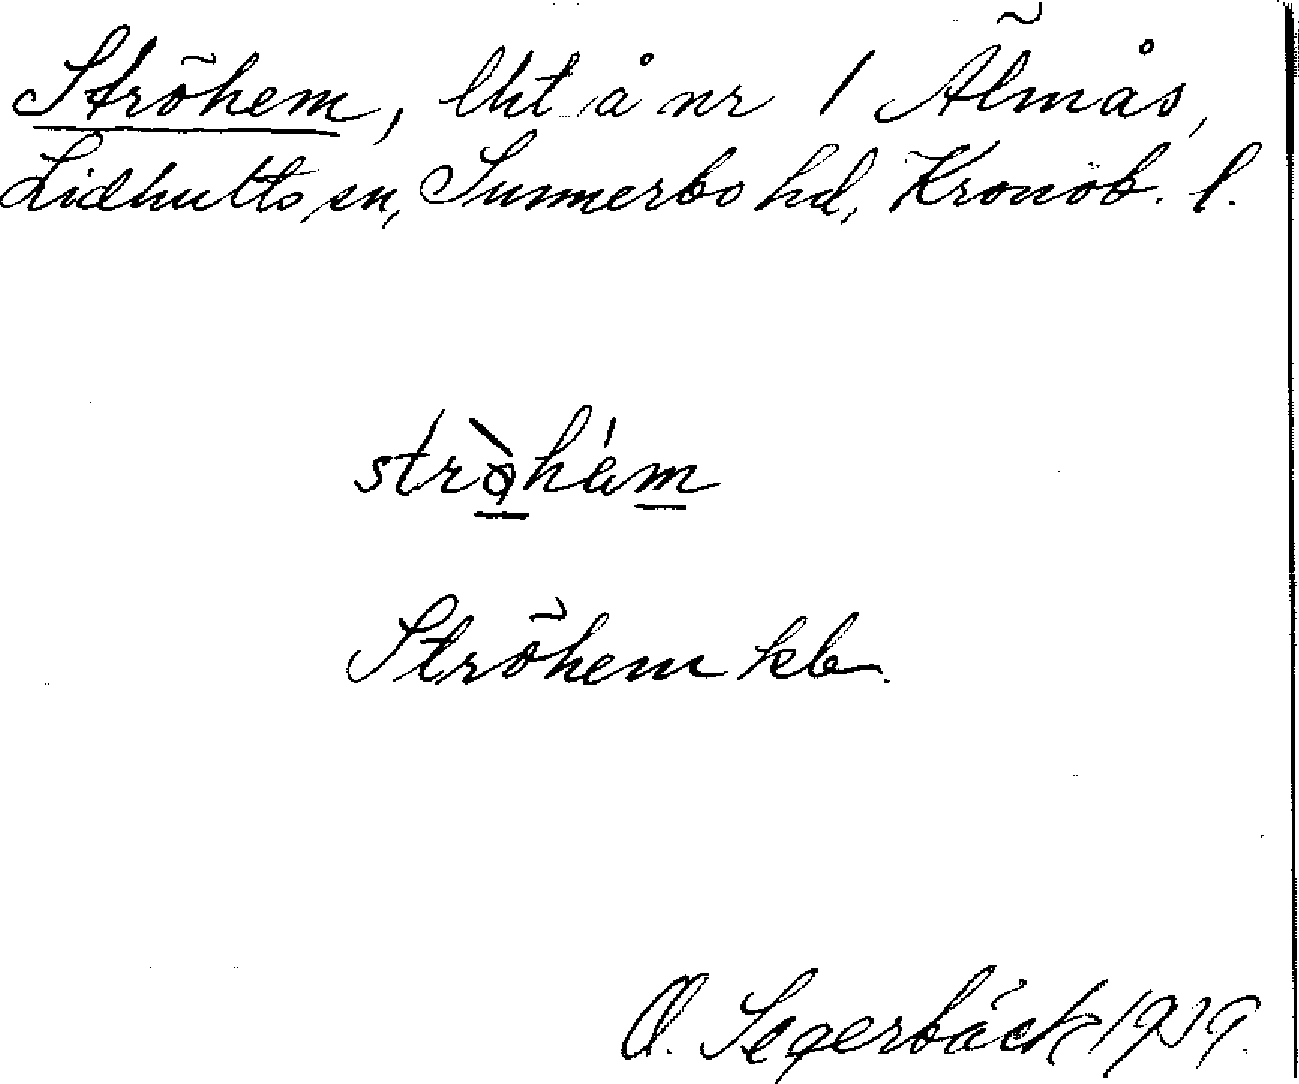 Ströhem, lht å nr 1 Älmås,
Lidhults sn, Sunnerbo hd, Kronob. l.
Ströhem kb.
O. Segerbäck 1939.